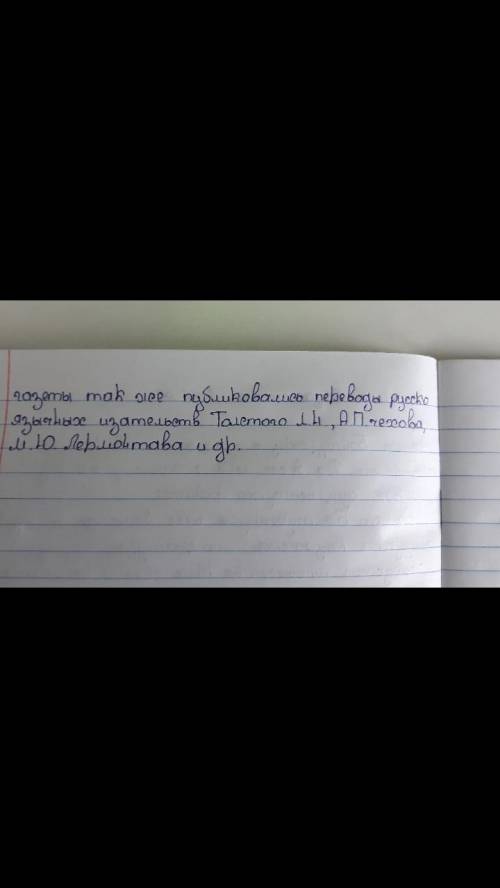 газеты так же публиковались переводы русско
язычных изательств Толстого Л.Н, А.П.чехова,
М.Ю Лермонтава и др.